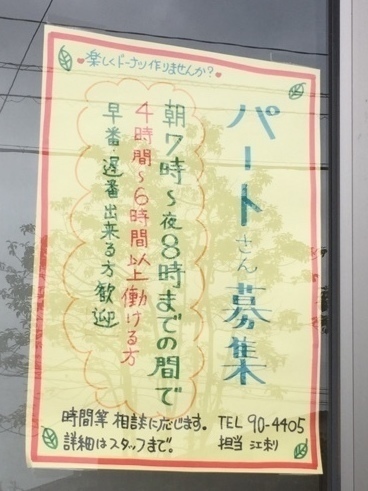 楽しくドーナツ作りませんか?
パートさん募集
朝7時~夜8時までの間で
4時間~6時間以上働ける方
早番・遅番出来る方歓迎
時間等相談に応じます。
詳細はスタッフまで。
TEL 90-4405
担当 江刺